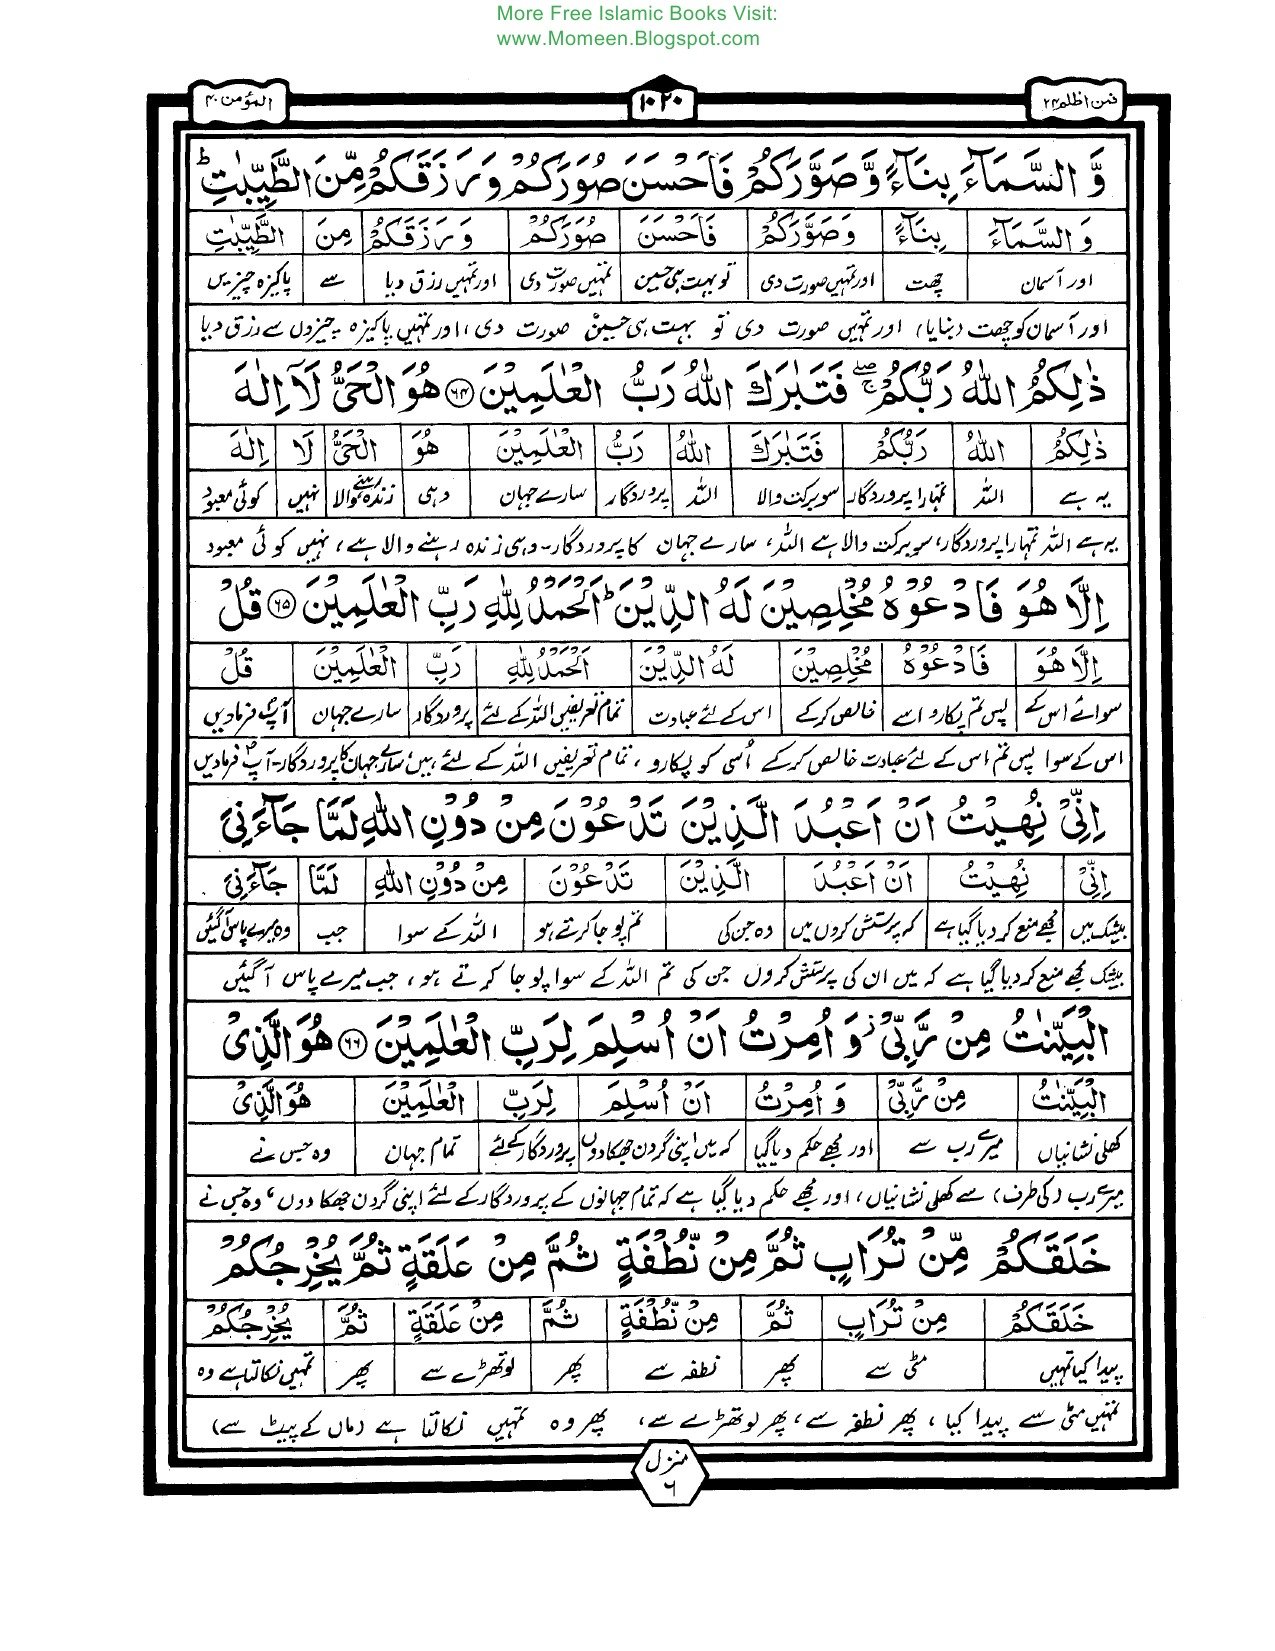 More Free Islamic Books Visit:
www.Momeen.Blogspot.com
فمن اظلم ۲۴ ۱۰۲۰ المؤمن ۴۰
وَّ السَّمَآءَ بِنَآءً وَّ صَوَّرَكُمْ فَاَحْسَنَ صُوَرَكُمْ وَ رَزَقَكُمْ مِّنَ الطَّيِّبٰتِ ؕ
وَ السَّمَآءَ بِنَآءً وَ صَوَّرَكُمْ فَاَحْسَنَ صُوَرَكُمْ وَ رَزَقَكُمْ مِنَ الطَّيِّبٰتِ
اور آسمان چھت اور تمہیں صورت دی تو بہت ہی حسین تمہیں صورت دی اور تمہیں رزق دیا سے پاکیزہ چیزیں
اور آسمان کو چھت (بنایا) اور تمہیں صورت دی تو بہت ہی حسین صورت دی، اور تمہیں پاکیزہ چیزوں سے رزق دیا
ذٰلِكُمُ اللّٰهُ رَبُّكُمْ ۖۚ فَتَبٰرَكَ اللّٰهُ رَبُّ الْعٰلَمِيْنَ ﴿۶۴﴾ هُوَ الْحَيُّ لَاۤ اِلٰهَ
ذٰلِكُمُ اللّٰهُ رَبُّكُمْ فَتَبٰرَكَ اللّٰهُ رَبُّ الْعٰلَمِيْنَ هُوَ الْحَيُّ لَا اِلٰهَ
یہ ہے اللہ تمہارا پروردگار سو برکت والا اللہ پروردگار سارے جہان وہی زندہ رہنے والا نہیں کوئی معبود
یہ ہے اللہ تمہارا پروردگار، سو برکت والا ہے اللہ، سارے جہان کا پروردگار۔ وہی زندہ رہنے والا ہے، نہیں کوئی معبود
اِلَّا هُوَ فَادْعُوْهُ مُخْلِصِيْنَ لَهُ الدِّيْنَ ؕ اَلْحَمْدُ لِلّٰهِ رَبِّ الْعٰلَمِيْنَ ﴿۶۵﴾ قُلْ
اِلَّا هُوَ فَادْعُوْهُ مُخْلِصِيْنَ لَهُ الدِّيْنَ اَلْحَمْدُ لِلّٰهِ رَبِّ الْعٰلَمِيْنَ قُلْ
سوائے اس کے پس تم پکارو اسے خالص کر کے اس کے لئے عبادت تمام تعریفیں اللہ کے لئے پروردگار سارے جہان آپؐ فرمادیں
اس کے سوا پس تم اس کے لئے عبادت خالص کر کے اُسی کو پکارو، تمام تعریفیں اللہ کے لئے ہیں، سارے جہان کا پروردگار۔ آپؐ فرمادیں
اِنِّيْ نُهِيْتُ اَنْ اَعْبُدَ الَّذِيْنَ تَدْعُوْنَ مِنْ دُوْنِ اللّٰهِ لَمَّا جَآءَنِيَ
اِنِّيْ نُهِيْتُ اَنْ اَعْبُدَ الَّذِيْنَ تَدْعُوْنَ مِنْ دُوْنِ اللّٰهِ لَمَّا جَآءَنِيَ
بیشک میں مجھے منع کر دیا گیا ہے کہ پرستش کروں میں وہ جن کی تم پوجا کرتے ہو اللہ کے سوا جب وہ میرے پاس آگئیں
بیشک مجھے منع کر دیا گیا ہے کہ میں ان کی پرستش کروں جن کی تم اللہ کے سوا پوجا کرتے ہو، جب میرے پاس آگئیں
الْبَيِّنٰتُ مِنْ رَّبِّيْ ۫ وَ اُمِرْتُ اَنْ اُسْلِمَ لِرَبِّ الْعٰلَمِيْنَ ﴿۶۶﴾ هُوَ الَّذِيْ
الْبَيِّنٰتُ مِنْ رَّبِّيْ وَ اُمِرْتُ اَنْ اُسْلِمَ لِرَبِّ الْعٰلَمِيْنَ هُوَ الَّذِيْ
کھلی نشانیاں میرے رب سے اور مجھے حکم دیا گیا کہ میں اپنی گردن جھکا دوں پروردگار کے لئے تمام جہان وہ جس نے
میرے رب (کی طرف) سے کھلی نشانیاں، اور مجھے حکم دیا گیا ہے کہ تمام جہانوں کے پروردگار کے لئے اپنی گردن جھکا دوں، وہ جس نے
خَلَقَكُمْ مِّنْ تُرَابٍ ثُمَّ مِنْ نُّطْفَةٍ ثُمَّ مِنْ عَلَقَةٍ ثُمَّ يُخْرِجُكُمْ
خَلَقَكُمْ مِنْ تُرَابٍ ثُمَّ مِنْ نُّطْفَةٍ ثُمَّ مِنْ عَلَقَةٍ ثُمَّ يُخْرِجُكُمْ
پیدا کیا تمہیں مٹی سے پھر نطفہ سے پھر لوتھڑے سے پھر تمہیں نکالتا ہے وہ
تمہیں مٹی سے پیدا کیا، پھر نطفہ سے، پھر لوتھڑے سے، پھر وہ تمہیں نکالتا ہے (ماں کے پیٹ سے)
منزل ۶